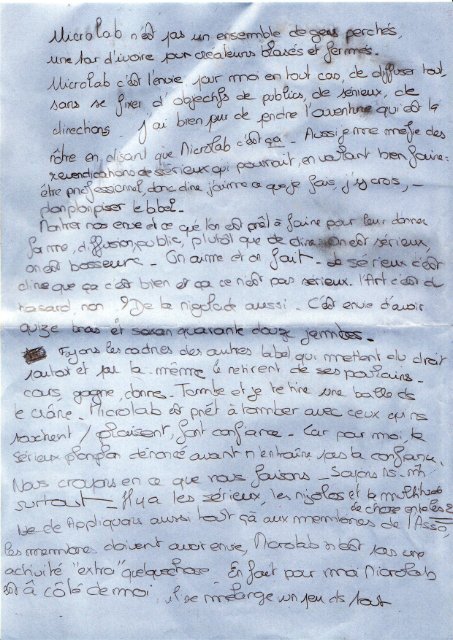 Microlab n'est pas un ensemble de gens perchés,
une tour d'ivoire pour créateurs blasés et fermés.
Microlab c'est l'envie, pour moi en tout cas, de diffuser tout
sans se fixer d'objectifs de publics, de sérieux, de
directions. J'ai bien peur de perdre l'aventure qui est la
nôtre en disant que Microlab c'est ça. Aussi je me méfie des
revendications de sérieux qui pourrait, en voulant bien faire
être professionnel donc dire j'aime ce que je fais, j'y crois,
plonploniser le label.
Montrer nos envie et ce que l'on est prêt à faire pour leur donner
forme, diffusion, public, plutôt que de dire on est sérieux,
on est bosseurs. On aime et on fait. Le sérieux c'est
dire que ça c'est bien et ça ce n'est pas sérieux. l'Art c'est du
hasard, non? De la rigolade aussi. C'est envie d'avoir
quize bras et soixan quarante douze jambes.
Fuyons les cadres des autres label qui mettent du droit
partout et par la même le retirent de ses poulains.
cours, gagne, donne. Tombe et je te tire une balle ds
le crâne. Microlab est prêt à tomber avec ceux qui ns
touchent / plaisent, font confiance. Car pour moi, le
sérieux plonplon dénoncé avant n'entraîne pas la confiance.
Nous croyons en ce que nous faisons. Soyons ns-m
surtout. Il y a les sérieux, les rigolos et la multitude
de chose entre les 2
Appliquons aussi tout ça aux membres de l'Asso,
les membres doivent avoir envie, Microlab n'est pas une
activité "extra" quelquechose. En fait pour moi Microlab
est à côté de moi, il se mélange un peu ds tout